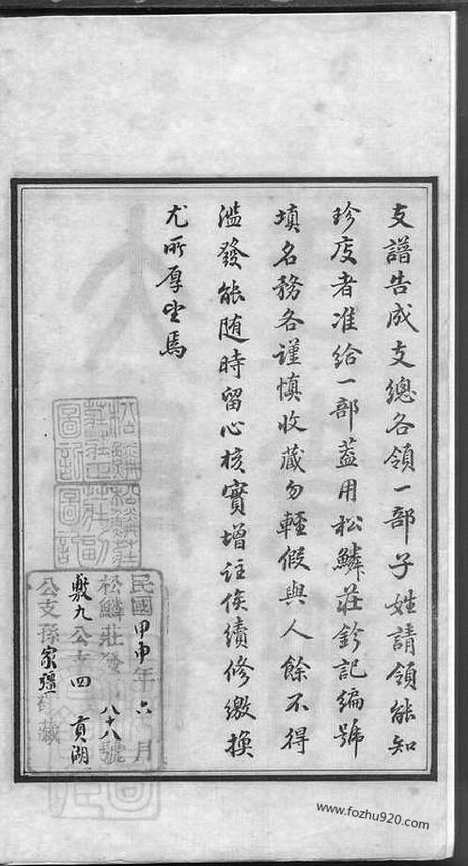 支譜告成支總各領一部子姓請領能知
珍庋者准給一部蓋用松鱗莊鈐記編號
填名務各謹慎收藏勿輕假與人餘不得
濫發能随時留心核實增註俟續修繳換
尤所厚望焉
民國甲申年六月
松鱗莊 八十八號
敷九公支 四 貢湖
公支孫家疆 藏
www.fozhu920.com